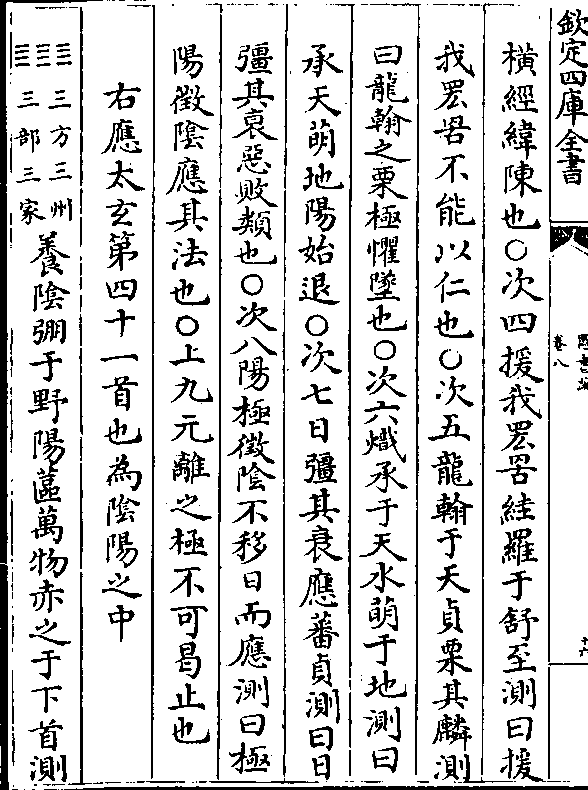 欽定四庫全書
卷八
橫經緯陳也〇次四援我罘罟絓羅于舒至測曰援
我罘罟不能以仁也〇次五龍翰于天貞栗其麟測
曰龍翰之栗極懼墜也〇次六熾承于天水萌于地測曰
承天萌地陽始退〇次七日彊其衰應蕃貞測曰日
彊其衰惡敗類也〇次八陽極徵陰不移日而應測曰極
陽徵陰應其法也〇上九元離之極不可曷止也
右應太玄第四十一首也為陰陽之中
三方三州
三部三家
養陰弸于野陽蓲萬物赤之于下首測